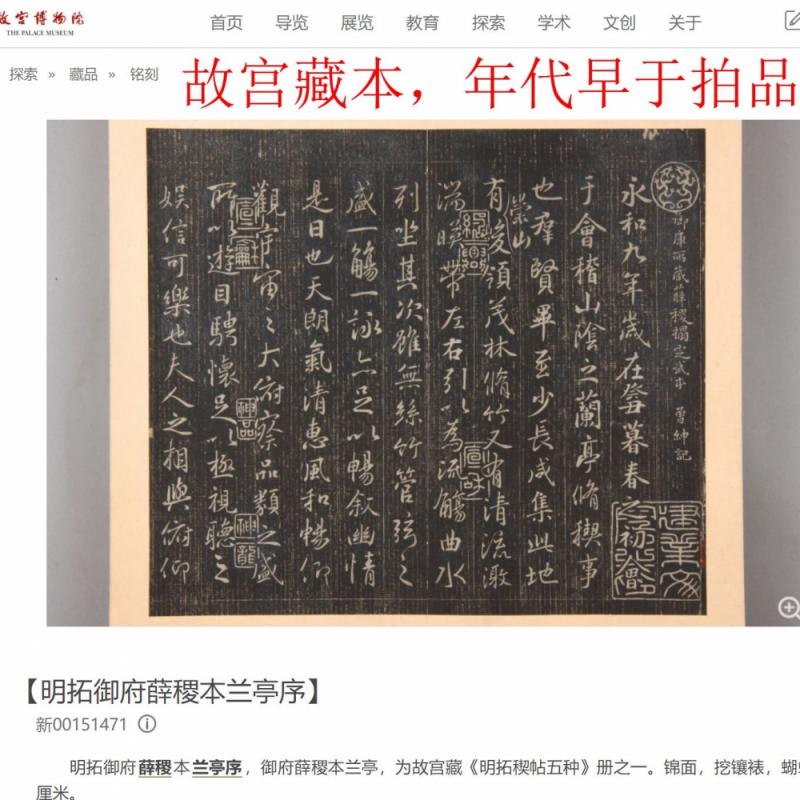 故宫博物院
THE PALACE MUSEUM
首页 导览 展览 教育 探索 学术 文创 关于
探索 » 藏品 » 铭刻
故宫藏本，年代早于拍品
御庫所藏薛稷搨定武本
永和九年歲在癸丑暮春之初會
于會稽山陰之蘭亭脩稧事
也羣賢畢至少長咸集此地
有崇山峻領茂林脩竹又有清流激
湍暎帶左右引以為流觴曲水
列坐其次雖無絲竹管弦之
盛一觴一詠亦足以暢叙幽情
是日也天朗氣清惠風和暢仰
觀宇宙之大俯察品類之盛
所以遊目騁懷足以極視聽之
娛信可樂也夫人之相與俯仰
神品
神龍
【明拓御府薛稷本兰亭序】
新00151471
明拓御府薛稷本兰亭序，御府薛稷本兰亭，为故宫藏《明拓稧帖五种》册之一。锦面，挖镶裱，蝴
厘米。